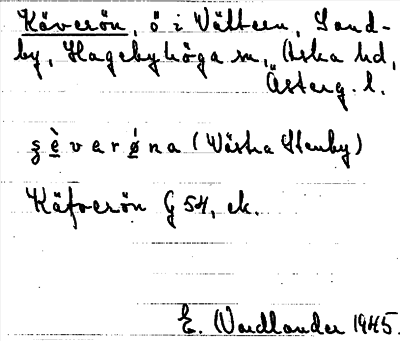 Käverön, ö i Vättern, Sand-
by, Hagebyhöga sn, Aska hd,
Österg. l.
ʂ è v a r ǿ n a (Västra Stenby)
Käfverön G 54, ek.
E. Nordlander 1945.